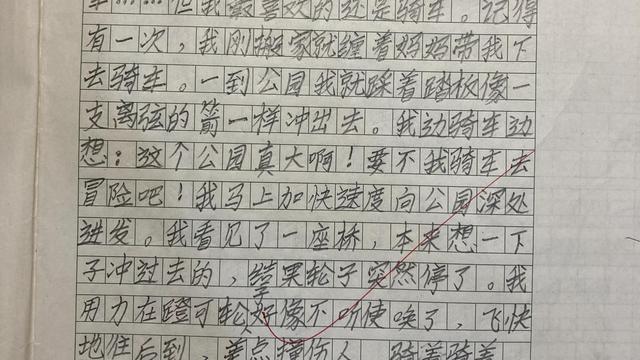 车……但我最喜欢的还是骑车。记得
有一次，我刚搬家就缠着妈妈带我下
去骑车。一到公园我就踩着踏板像一
支离弦的箭一样冲出去。我边骑车边
想：这个公园真大啊！要不我骑车去
冒险吧！我马上加快速度向公园深处
进发。我看见了一座桥，本来想一下
子冲过去的，结果轮子突然停了。我
用力在蹬可轮子好像不听使唤了，飞快
地往后到，差点撞伤人。骑着骑着